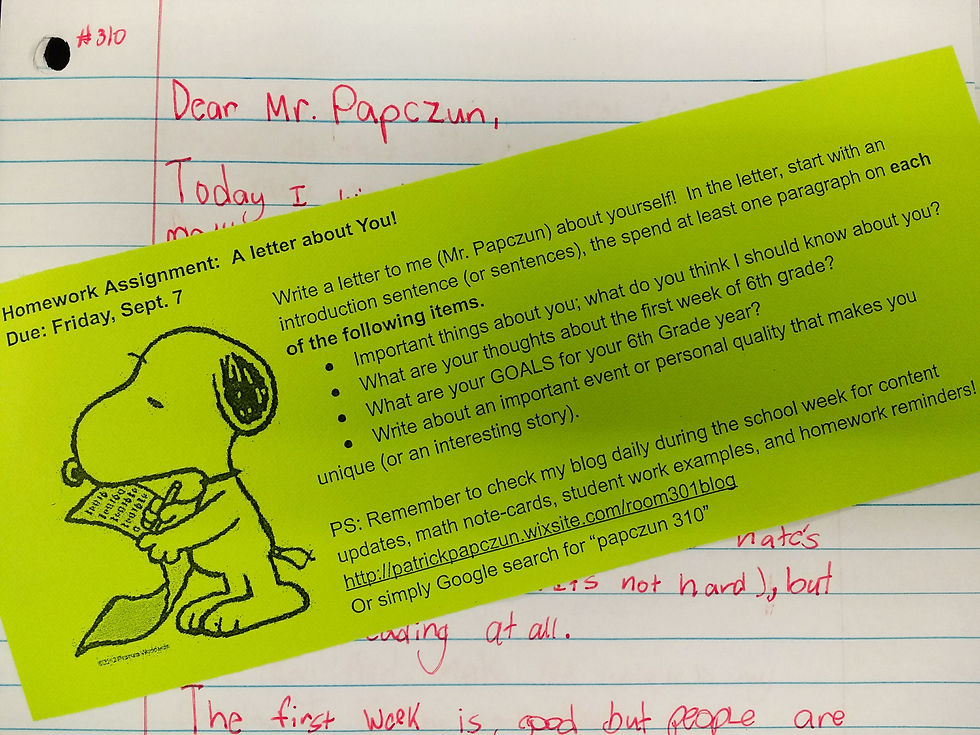 #310
Dear Mr. Papczun,
Today I
Homework Assignment: A letter about You!
Due: Friday, Sept. 7
Write a letter to me (Mr. Papczun) about yourself! In the letter, start with an
introduction sentence (or sentences), the spend at least one paragraph on each
of the following items.
• Important things about you; what do you think I should know about you?
• What are your thoughts about the first week of 6th grade?
• What are your GOALS for your 6th Grade year?
• Write about an important event or personal quality that makes you
unique (or an interesting story).
PS: Remember to check my blog daily during the school week for content
updates, math note-cards, student work examples, and homework reminders!
http://patrickpapczun.wixsite.com/room301blog
Or simply Google search for “papczun 310”
not hard), but
at all.
The first week is good but people are